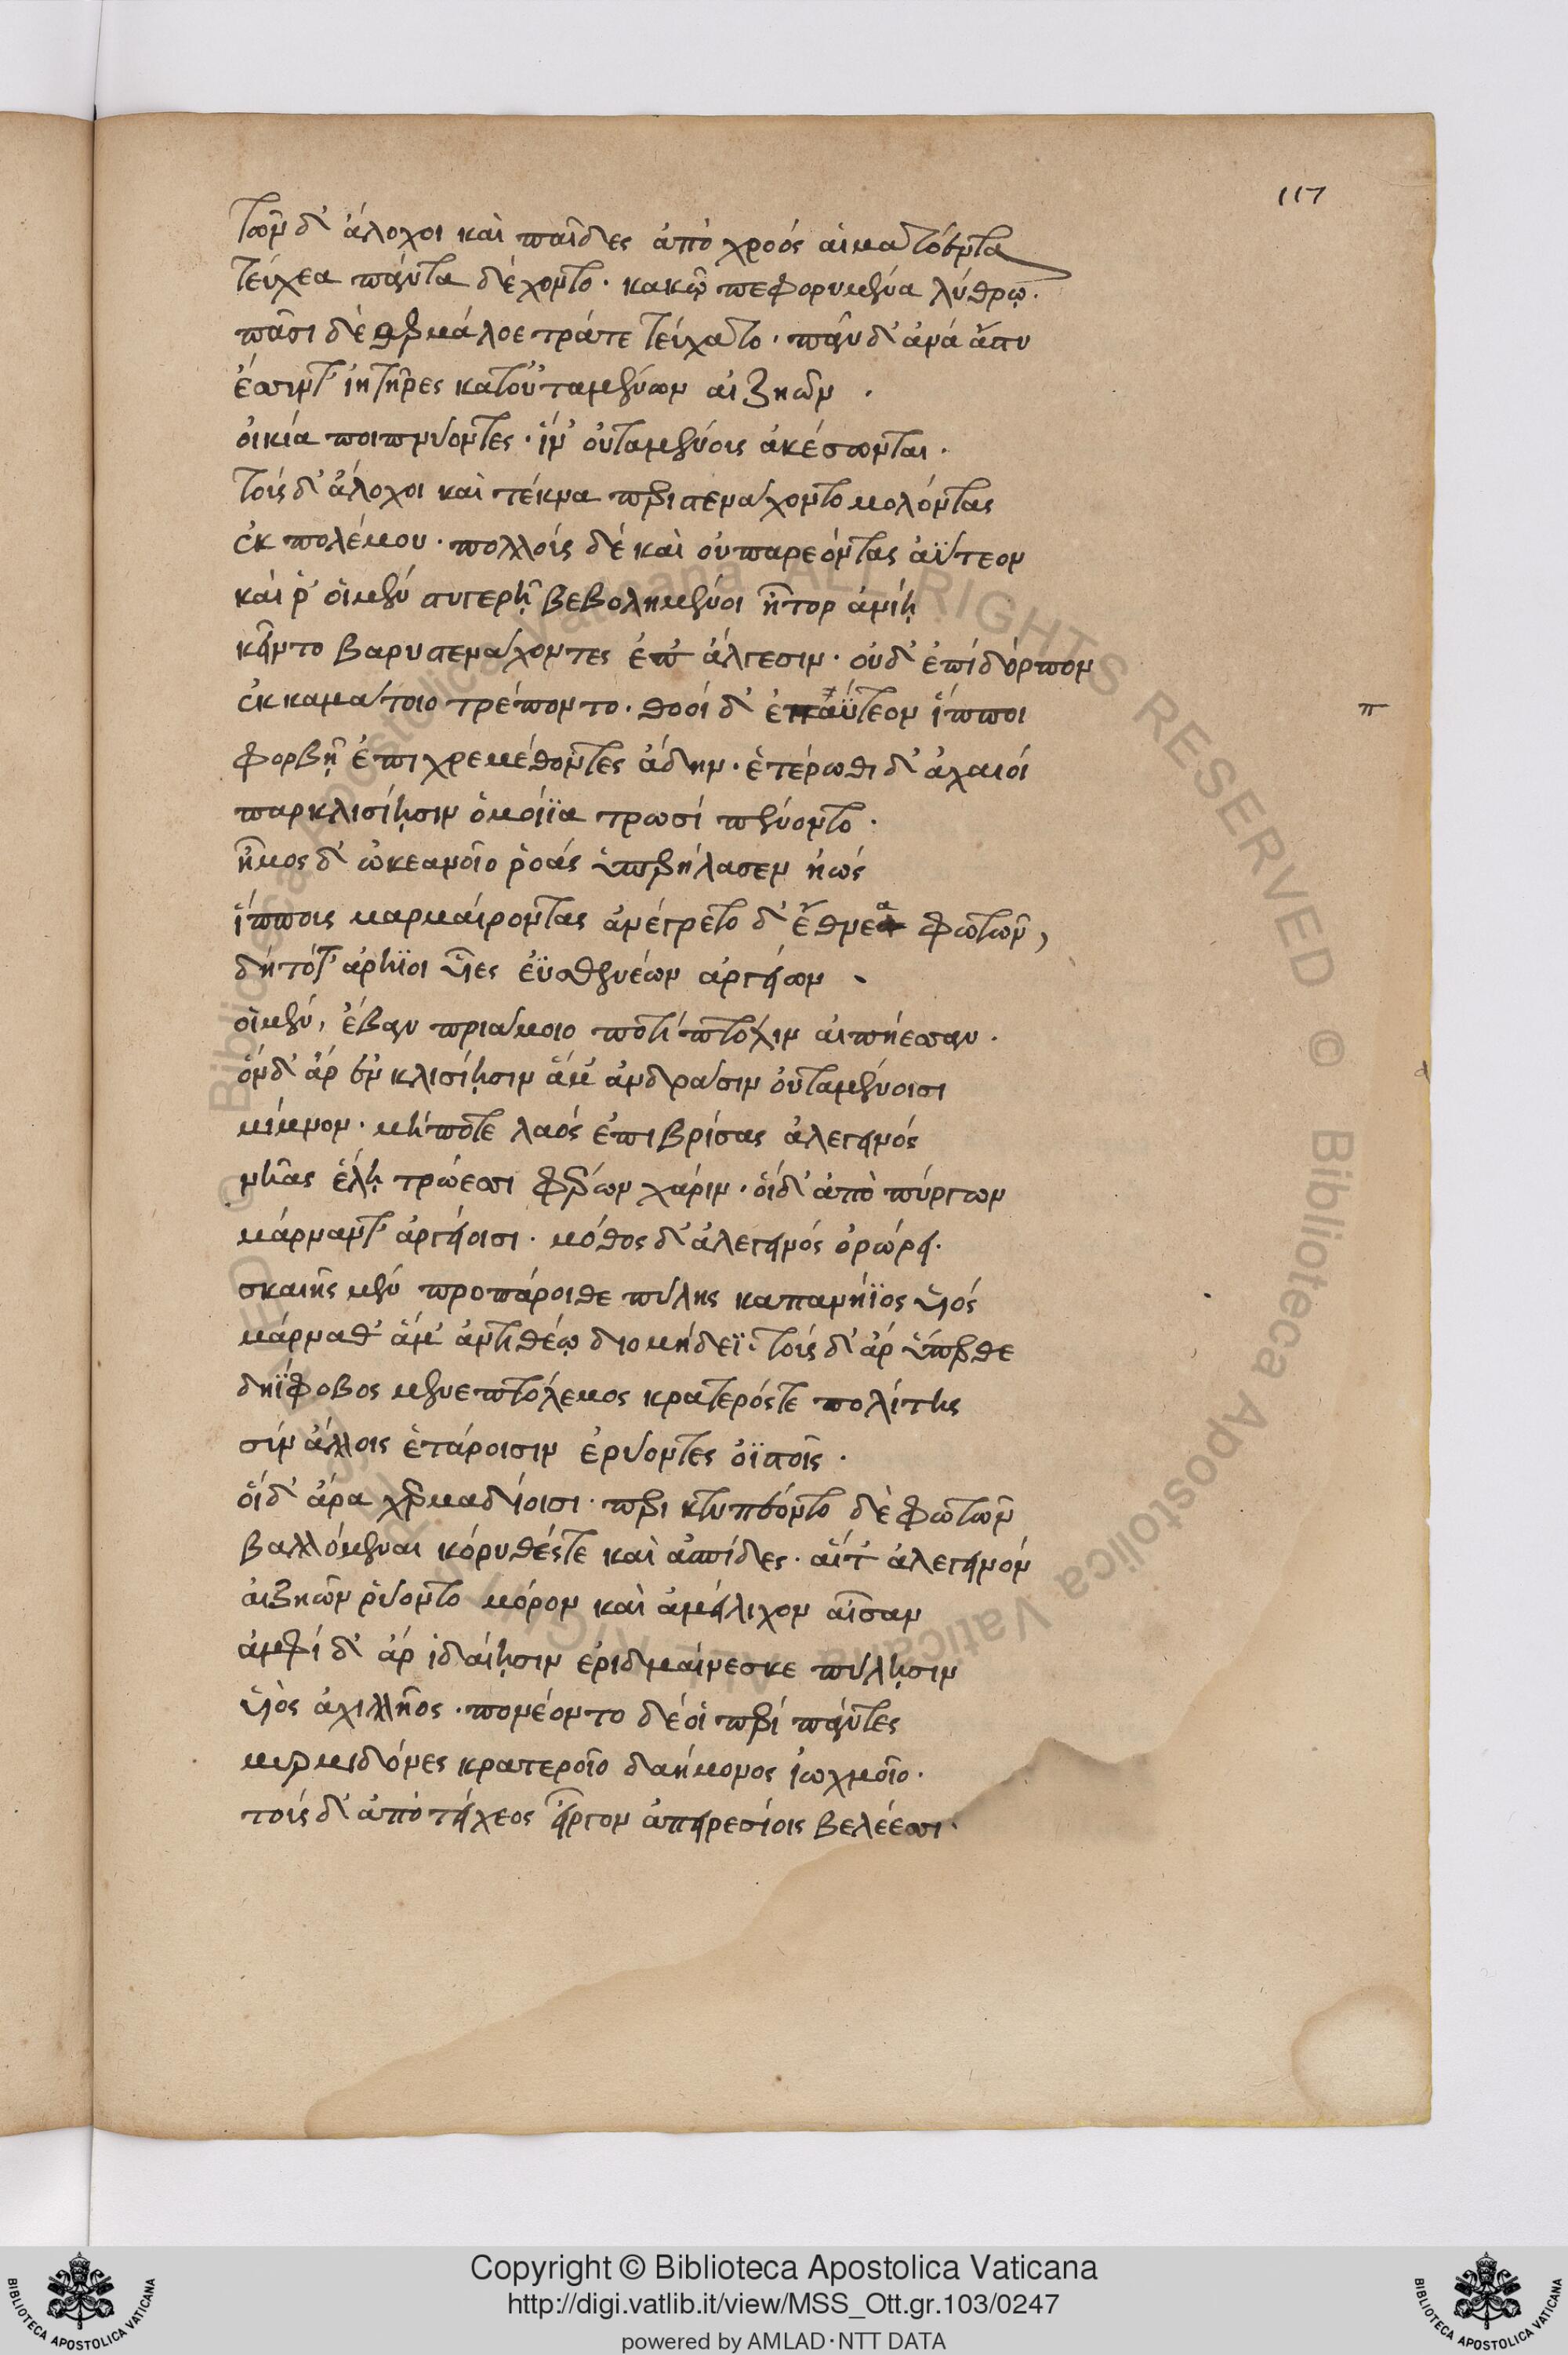 117
τῶν δ' ἄλοχοι καὶ παῖδες ἀπὸ χροός αἱματόεντα
τεύχεα πάντα δέχοντο· κακῶ πεφορυμένα λύθρῳ.
πᾶσι δὲ θερμὰ λοετρά τε τεύχατο· πᾶν δ' ἀνά ἄστυ
ἔσσυντ' ἰητῆρες κατ' οὐταμένων αἰζηῶν.
οἰκία ποιπνύοντες· ἵν' οὐταμένοις ἀκέσωνται.
τοῖς δ' ἄλοχοι καὶ τέκνα περιστενάχοντο μολόντας
ἐκ πολέμου· πολλοῖς δέ καὶ οὐ παρεόντας ἀΰτεον
καί ῥ' οἱ μέν στυγερῇ βεβολημένοι ἦτορ ἀνίῃ
κεῖντο βαρυστενάχοντες ἐπ' ἄλγεσιν· οὐδ' ἐπί δόρπον
ἐκ καμάτοιο τρέποντο· θοοί δ' ἐπαΰτεον ἵπποι
φορβῇ ἐπι χρεμέθοντες ἄδην· ἑτέρωθι δ' ἀχαιοί
παρ κλισίῃσιν ὁμοίϊα τρωσί πένοντο·
ἦμος δ' ὠκεανοῖο ῥοάς ὑπερήλασεν ἠώς
ἵππους μαρμαίροντας ἀνέγρετο δ' ἔθνεα φωτῶν,
δή τότ' ἀρήϊοι υἷες ἐϋσθενέων ἀργείων
οἱ μέν, ἔβαν πριάμοιο ποτί πτόλιν αἰπήεσσαν.
οἵ δ' ἄρ ἐν κλισίῃσιν ἅμ' ἀνδράσιν οὐταμένοισι
μίμνον· μή ποτε λαός ἐπιβρίσας ἀλεγεινός
νῆας ἕλῃ τρώεσσι φέρων χάριν· οἵ δ' ἀπὸ πύργων
μάρναντ' ἀργείοισι· μόθος δ' ἀλεγεινός ὀρώρει.
σκαιῆς μέν προπάροιθε πύλης καπανήϊος υἱός
μάρναθ' ἅμ' ἀντιθέῳ διομήδεϊ· τοῖς δ' ἄρ ὕπερθε
δηΐφοβος μενεπτόλεμος κρατερός τε πολίτης
σύν ἄλλοις ἑτάροισιν ἐρύοντες ὀϊστοῖς.
οἵ δ' ἄρα χερμαδίοισι· περικτυπέοντο δὲ φωτῶν
βαλλόμεναι κόρυθές τε καὶ ἀσπίδες· αἵ τ' ἀλεγεινόν
αἰζηῶν ῥύοντο μόρον καὶ ἀμείλιχον αἶσαν
ἀμφί δ' ἄρ ἰδαίῃσιν ἐριδμαίνεσκε πύλῃσιν
υἱὸς ἀχιλλῆος· πονέοντο δέ οἱ περί πάντες
μυρμιδόνες κρατεροῖο δαήμονος ἰωχμοῖο.
τοῖς δ' ἀπὸ τείχεος εἶργον ἀπειρεσίοις βελέεσσι·
Copyright © Biblioteca Apostolica Vaticana
http://digi.vatlib.it/view/MSS_Ott.gr.103/0247
powered by AMLAD·NTT DATA